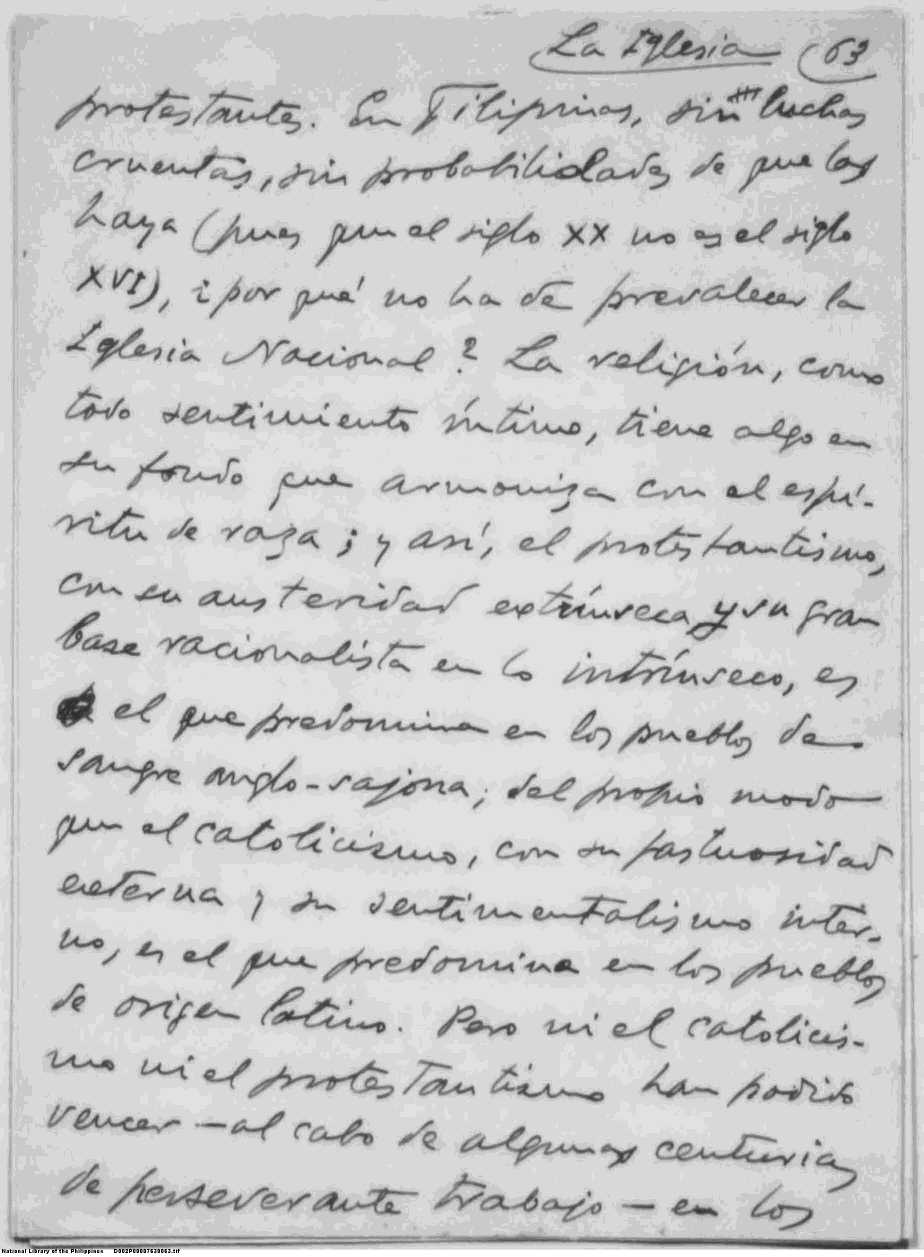 La Iglesia (63
protestantes. En Filipinas, sin luchas
cruentas, sin probabilidades de que las
haya (pues que el siglo XX no es el siglo
XVI), ¿por qué no ha de prevalecer la
Iglesia Nacional? La religión, como
todo sentimiento íntimo, tiene algo en
su fondo que armoniza con el espí-
ritu de raza; y así, el protestantismo,
con su austeridad extrínseca y su gran
base racionalista en lo intrínseco, es
el que predomina en los pueblos de
sangre anglo-sajona; del propio modo
que el catolicismo, con su fastuosidad
externa y su sentimentalismo inter-
no, es el que predomina en los pueblos
de origen latino. Pero ni el catolicis-
mo ni el protestantismo han podido
vencer —al cabo de algunas centurias
de perseverante trabajo— en los
National Library of the Philippines D002P00007630063.tif